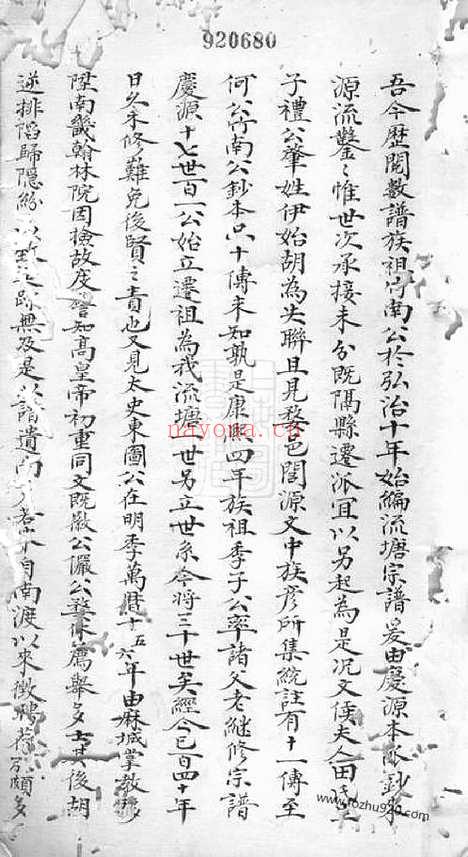 920680
吾今歴閱數譜族祖竹南公於弘治十年始編流塘宗譜爰由慶源本派鈔
源流鑿〻惟世次承接未分既隔縣遷派宜以另起為是况文侯夫人田氏
子禮公肇姓伊始胡為失聯且見婺邑閭源文中族彦所集統註有十一傳至
何公竹南公鈔本只十傳未知孰是康熙四年族祖季子公率諸父老継修宗譜
慶源十七世百一公始立遷祖為我流塘一世另立世系今將三十世矣經今已百四十年
日久未修難免後賢之責也又見太史東圖公在明季萬曆十五六年由麻城掌教
陞南畿翰林院因撿故度誥知高皇帝初重同文既嚴公儼公
薦舉多士其後胡
逆排陷歸隱
無及是以譜遺
自南渡以來徵聘
頗多
nayona.cn
www.fozhu920.com